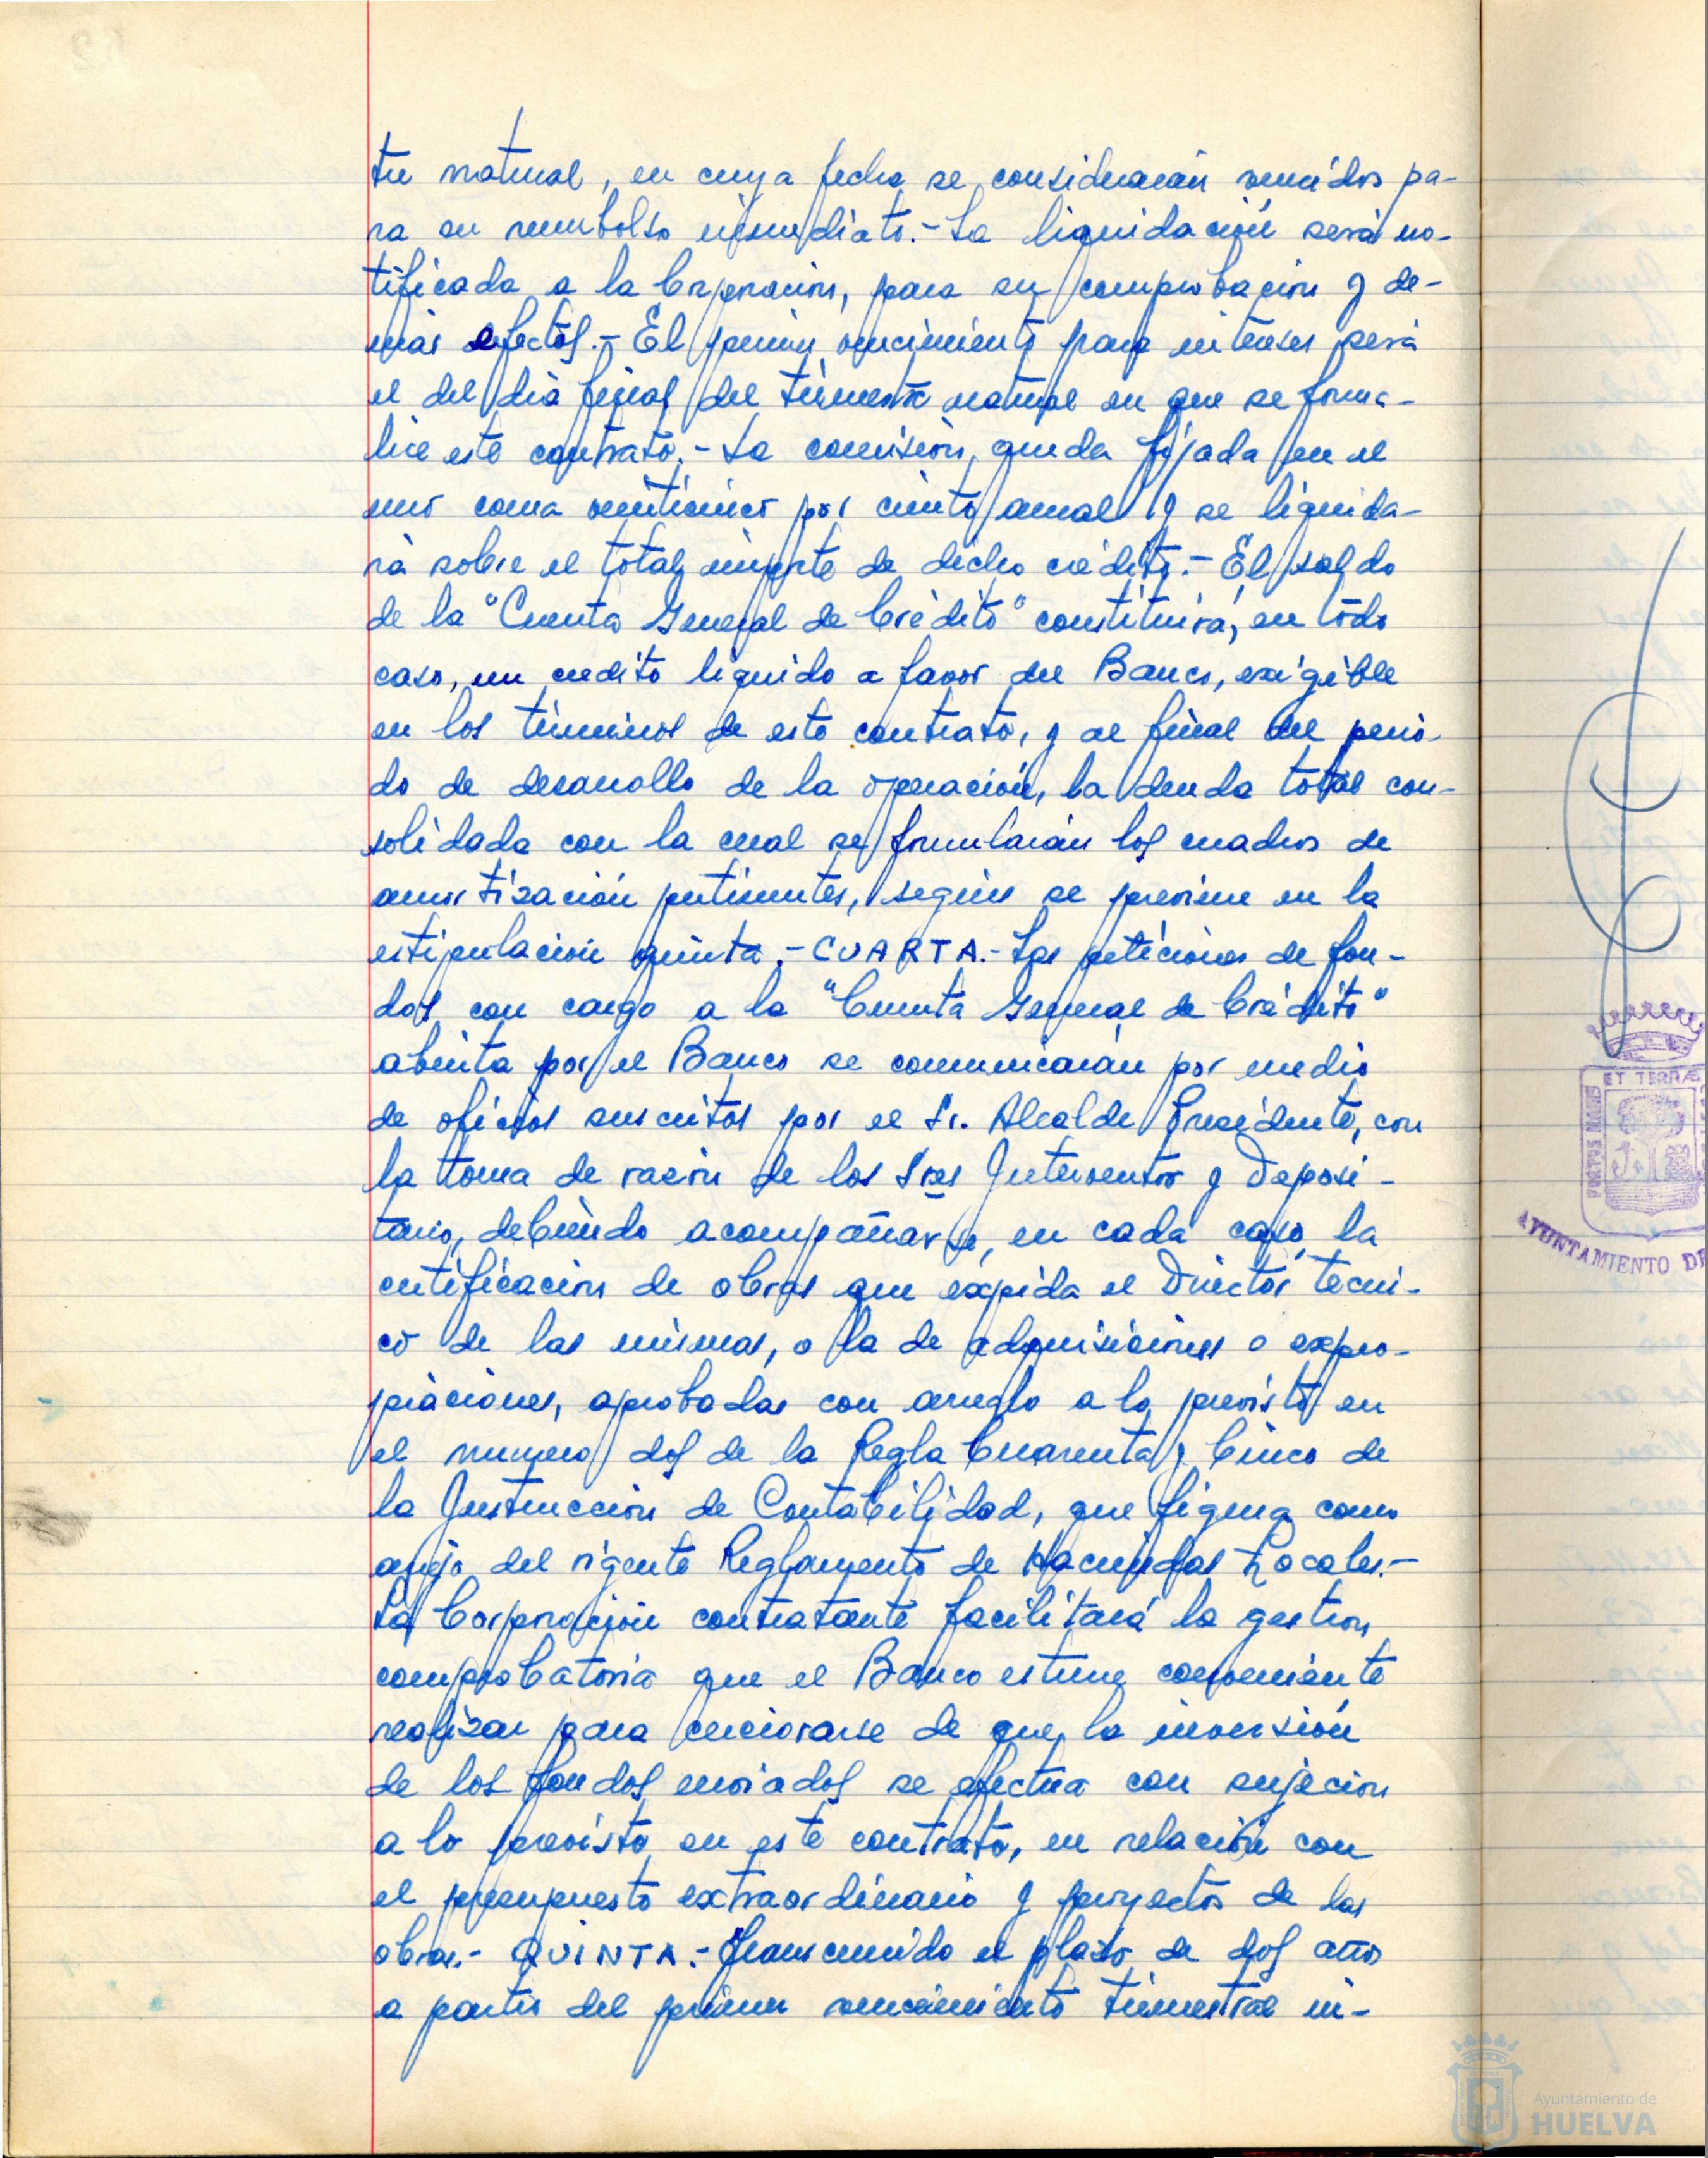 tre natural, en cuya fecha se considerarán vencidos pa-
ra su reembolso inmediato.- La liquidación será no-
tificada a la Corporación, para su comprobación y de-
más efectos.- El primer vencimiento para intereses será
el del día final del trimestre natural en que se forma-
lice este contrato.- La comisión, queda fijada en el
uno coma veinticinco por ciento anual y se liquida-
rá sobre el total importe de dicho crédito.- El saldo
de la "Cuenta General de Crédito" constituirá, en todo
caso, un credito liquido a favor del Banco, exigible
en los términos de este contrato, y al final del perio-
do de desarrollo de la operación, la deuda total con-
solidada con la cual se formularán los cuadros de
amortización pertinentes, según se previene en la
estipulación quinta.- CUARTA.- Las peticiones de fon-
dos con cargo a la "Cuenta General de Crédito"
abierta por el Banco se comunicarán por medio
de oficios suscritos por el Sr. Alcalde Presidente, con
la toma de razón de los Sres Interventor y Deposi-
tario, debiendo acompañarse, en cada caso, la
certificación de obras que expida el Director tecni-
co de las mismas, o la de adquisiciones o expro-
piaciones, aprobadas con arreglo a lo previsto en
el numero dos de la Regla Cuarenta y Cinco de
la Instrucción de Contabilidad, que figura como
anejo del vigente Reglamento de Haciendas Locales.-
La Corporación contratante facilitará la gestion
comprobatoria que el Banco estime conveniente
realizar para cerciorarse de que la inversión
de los fondos enviados se efectua con sujeción
a lo previsto en este contrato, en relación con
el presupuesto extraordinario y proyectos de las
obras.- QUINTA.- Transcurrido el plazo de dos años
a partir del primer vencimiento trimestral in-
ET TERRÆ
PORTUS MARIS
AYUNTAMIENTO DE
Ayuntamiento de
HUELVA